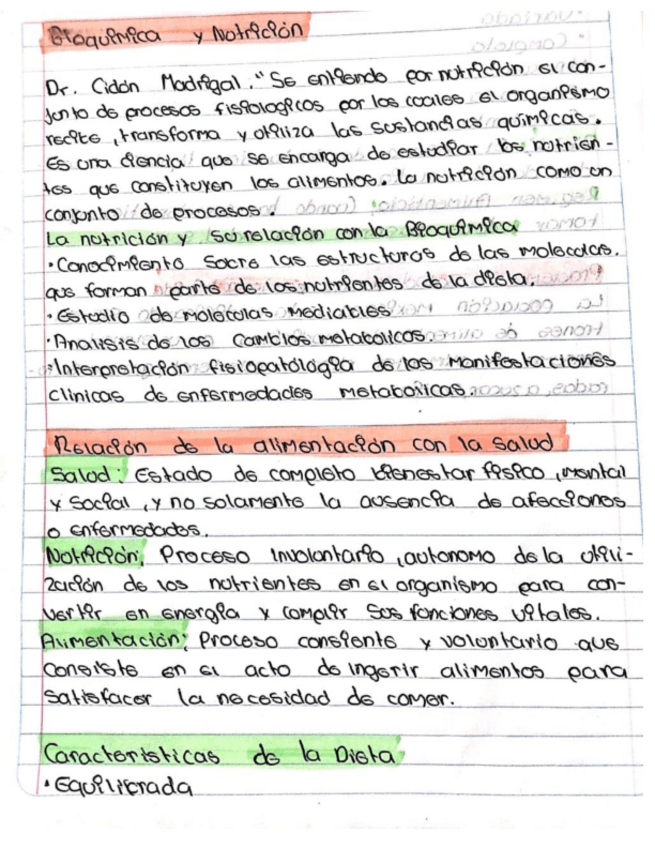 Bioquímica y Nutrición
Dr. Cidón Madrigal: "Se entiende por nutrición el con-
junto de procesos fisiologicos por los cuales el organismo
recibe, transforma y utiliza las sustancias químicas.
Es una ciencia que se encarga de estudiar los nutrien-
tes que constituyen los alimentos. La nutrición como un
conjunto de procesos.
La nutrición y su relación con la Bioquímica
• Conocimiento sobre las estructuras de las moleculas.
que forman parte de los nutrientes de la dieta.
• Estudio de moleculas mediables
• Analisis de los cambios metabolicos
• Interpretación fisiopatológia de las manifestaciones
clinicas de enfermedades metabolicas.
Relación de la alimentación con la salud
Salud: Estado de completo bienestar físico, mental
y social, y no solamente la ausencia de afecciones
o enfermedades.
Nutrición: Proceso involuntario, autonomo de la utili-
zación de los nutrientes en el organismo para con-
vertir en energía y complir sus funciones vitales.
Alimentación: Proceso consiente y voluntario que
consiste en el acto de ingerir alimentos para
satisfacer la necesidad de comer.
Caracteristicas de la Dieta
• Equilibrada